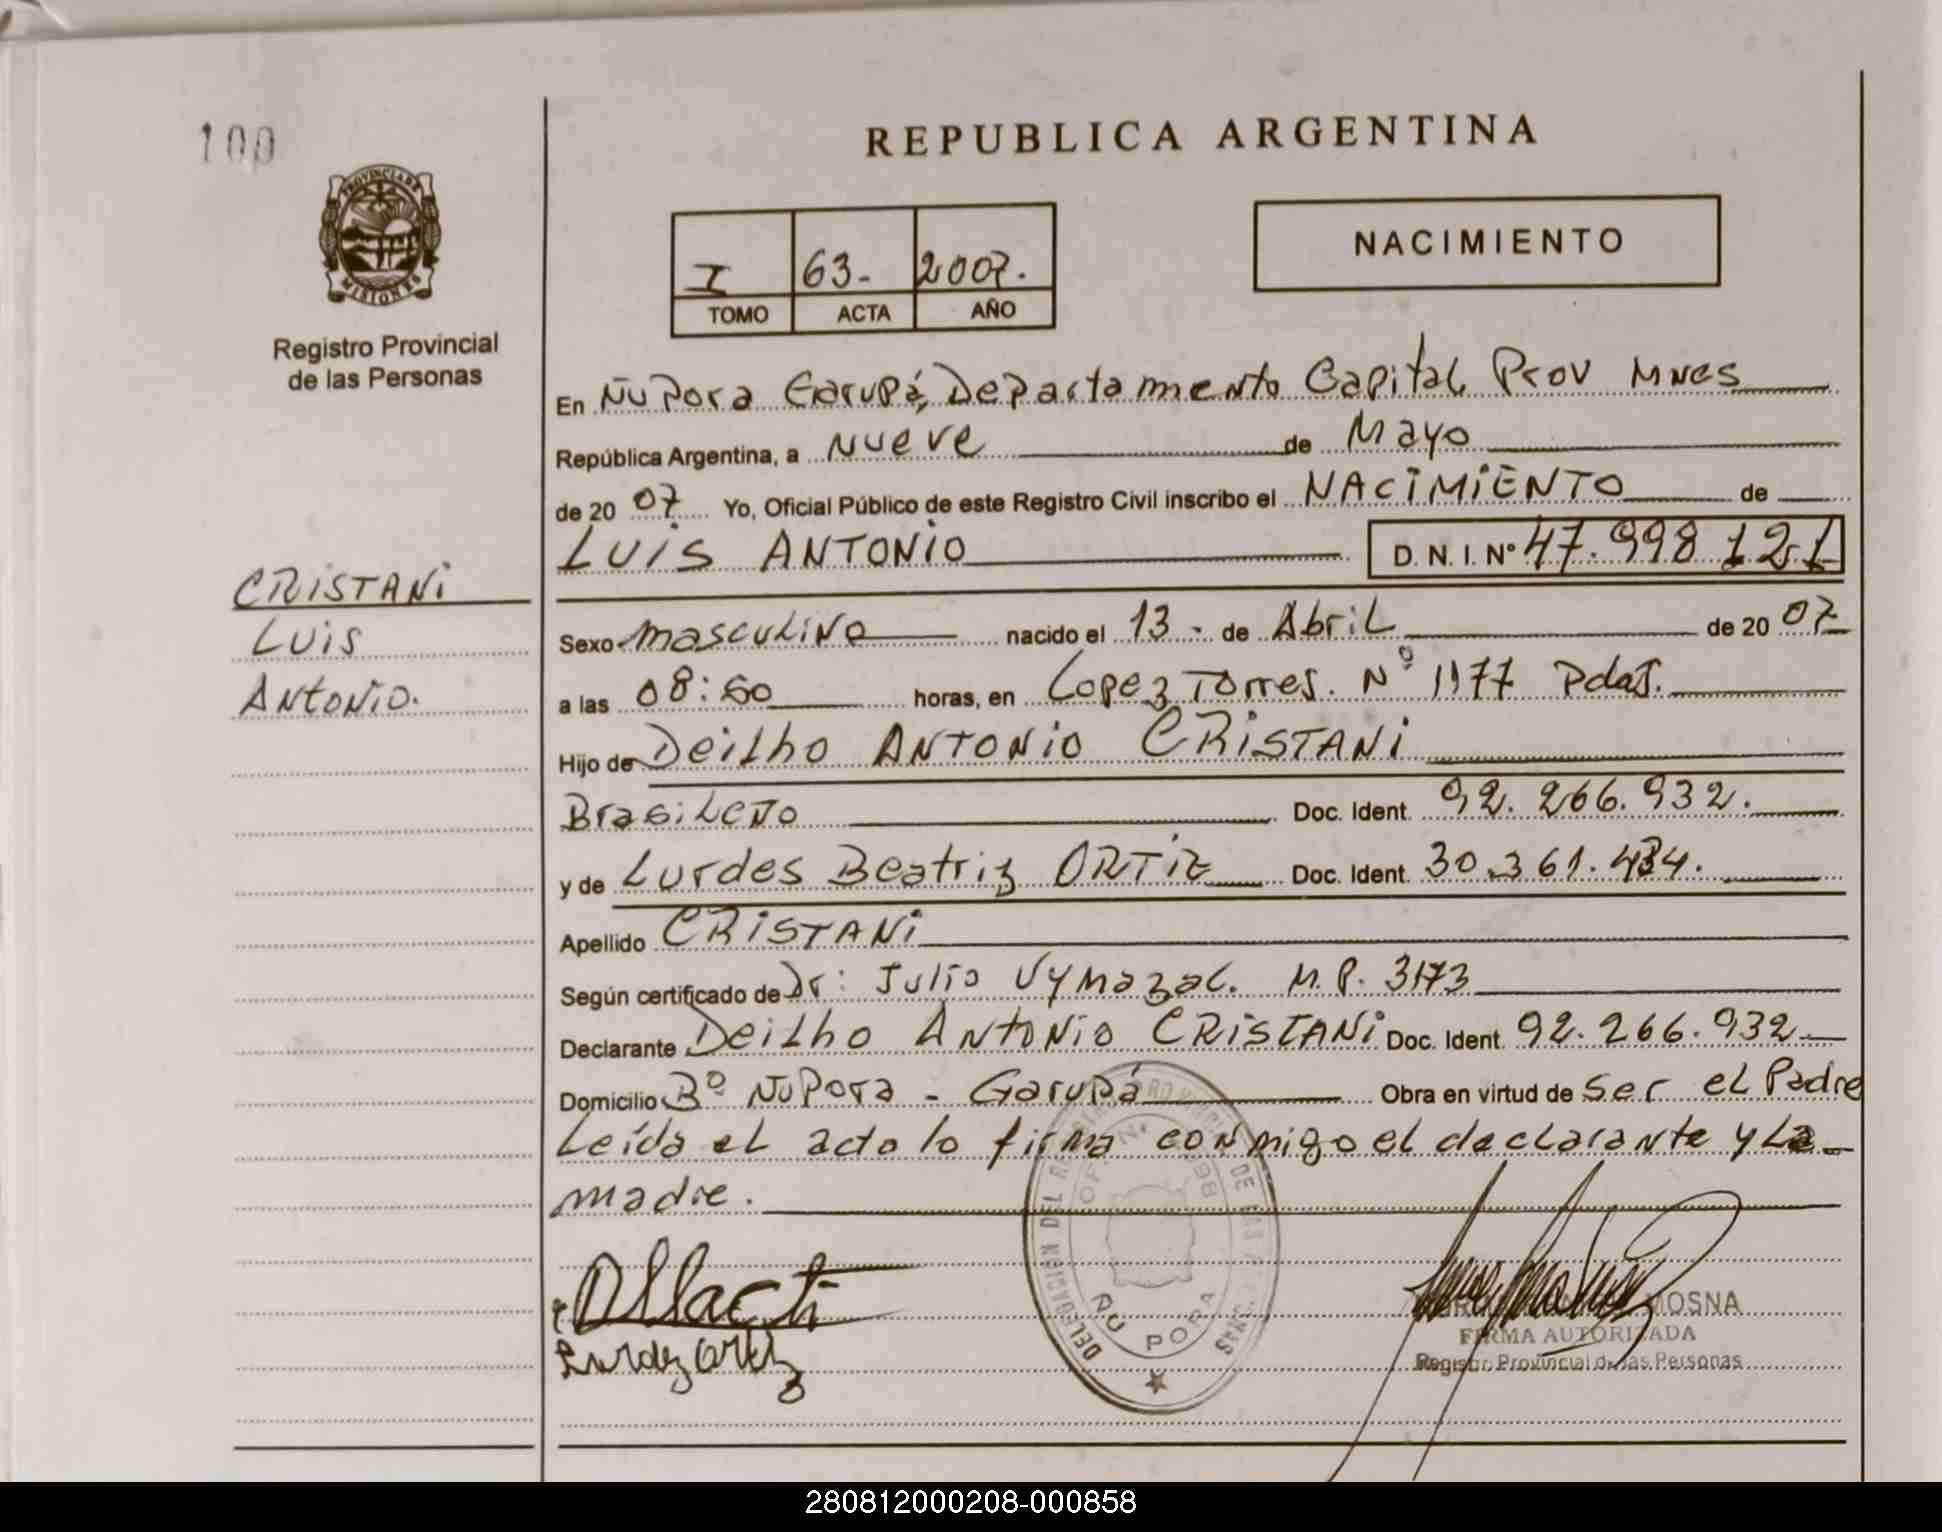 100
REPUBLICA ARGENTINA
PROVINCIA DE
MISIONES
Registro Provincial
de las Personas
I 63- 2007.
TOMO ACTA AÑO
NACIMIENTO
En Ñu Pora Garupá, Departamento Capital Prov Mnes
República Argentina, a Nueve de Mayo
de 2007 Yo, Oficial Público de este Registro Civil inscribo el NACIMIENTO de
LUIS ANTONIO D. N. I. Nº 47.998 121
CRISTANI
LUIS
ANTONIO.
Sexo masculino nacido el 13 - de Abril de 2007
a las 08: horas, en Lopez Torres. Nº 1177 Pdas.
Hijo de Deilho ANTONIO CRISTANI
Brasileño Doc. Ident. 92.266.932.
y de Lurdes Beatriz ORTIZ Doc. Ident. 30.361.434.
Apellido CRISTANI
Según certificado de Dr: Julio Vymazal. M.P. 3173
Declarante Deilho Antonio CRISTANI Doc. Ident. 92.266.932
Domicilio Bº ÑuPora - Garupá Obra en virtud de ser el Padre
Leída el acta lo firma conmigo el declarante y La
madre.
DELEGACION DEL REGISTRO PROVINCIAL DE LAS PERSONAS
ÑU PORA
Lurdez Ortiz
MOSNA
FIRMA AUTORIZADA
Registro Provincial de las Personas
280812000208-000858